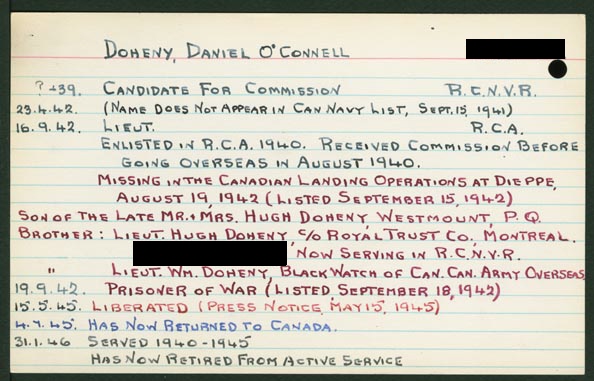 DOHENY, DANIEL O'CONNELL
?-39. CANDIDATE FOR COMMISSION R.C.N.V.R.
23.4.42. (NAME DOES NOT APPEAR IN CAN NAVY LIST, SEPT. 15, 1941)
16.9.42. LIEUT. R.C.A.
ENLISTED IN R.C.A. 1940. RECEIVED COMMISSION BEFORE
GOING OVERSEAS IN AUGUST 1940.
MISSING IN THE CANADIAN LANDING OPERATIONS AT DIEPPE,
AUGUST 19, 1942 (LISTED SEPTEMBER 15, 1942)
SON OF THE LATE MR. & MRS. HUGH DOHENY, WESTMOUNT, P.Q.
BROTHER: LIEUT. HUGH DOHENY, C/O ROYAL TRUST CO., MONTREAL.
NOW SERVING IN R.C.N.V.R.
" LIEUT. WM. DOHENY, BLACK WATCH OF CAN. CAN. ARMY OVERSEAS
19.9.42. PRISONER OF WAR (LISTED SEPTEMBER 18, 1942)
15.5.45. LIBERATED (PRESS NOTICE, MAY 15, 1945)
4.7.45. HAS NOW RETURNED TO CANADA.
31.1.46 SERVED 1940-1945
HAS NOW RETIRED FROM ACTIVE SERVICE